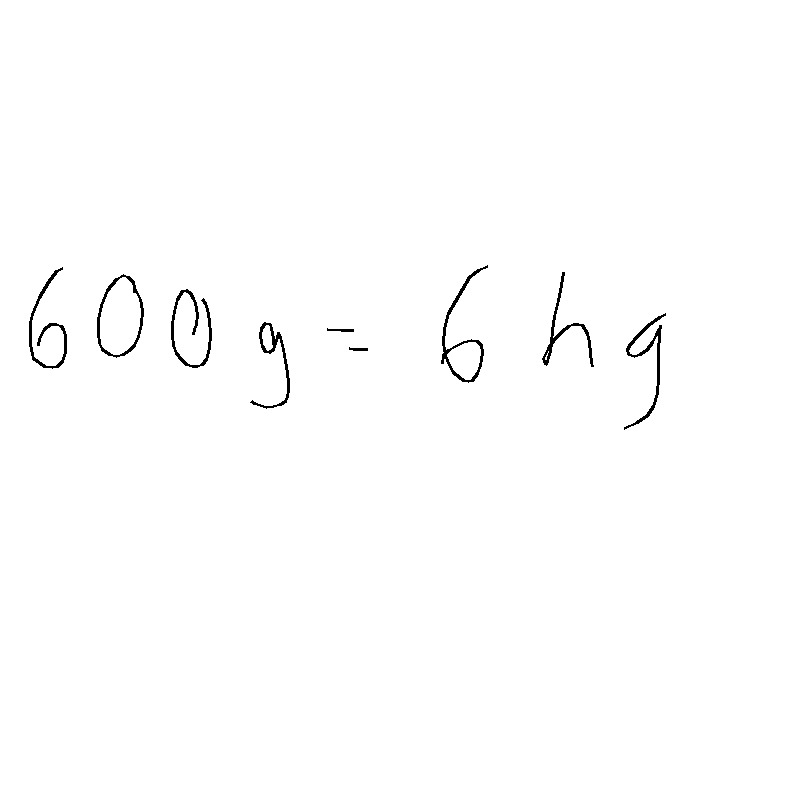 600 g = 6 hg